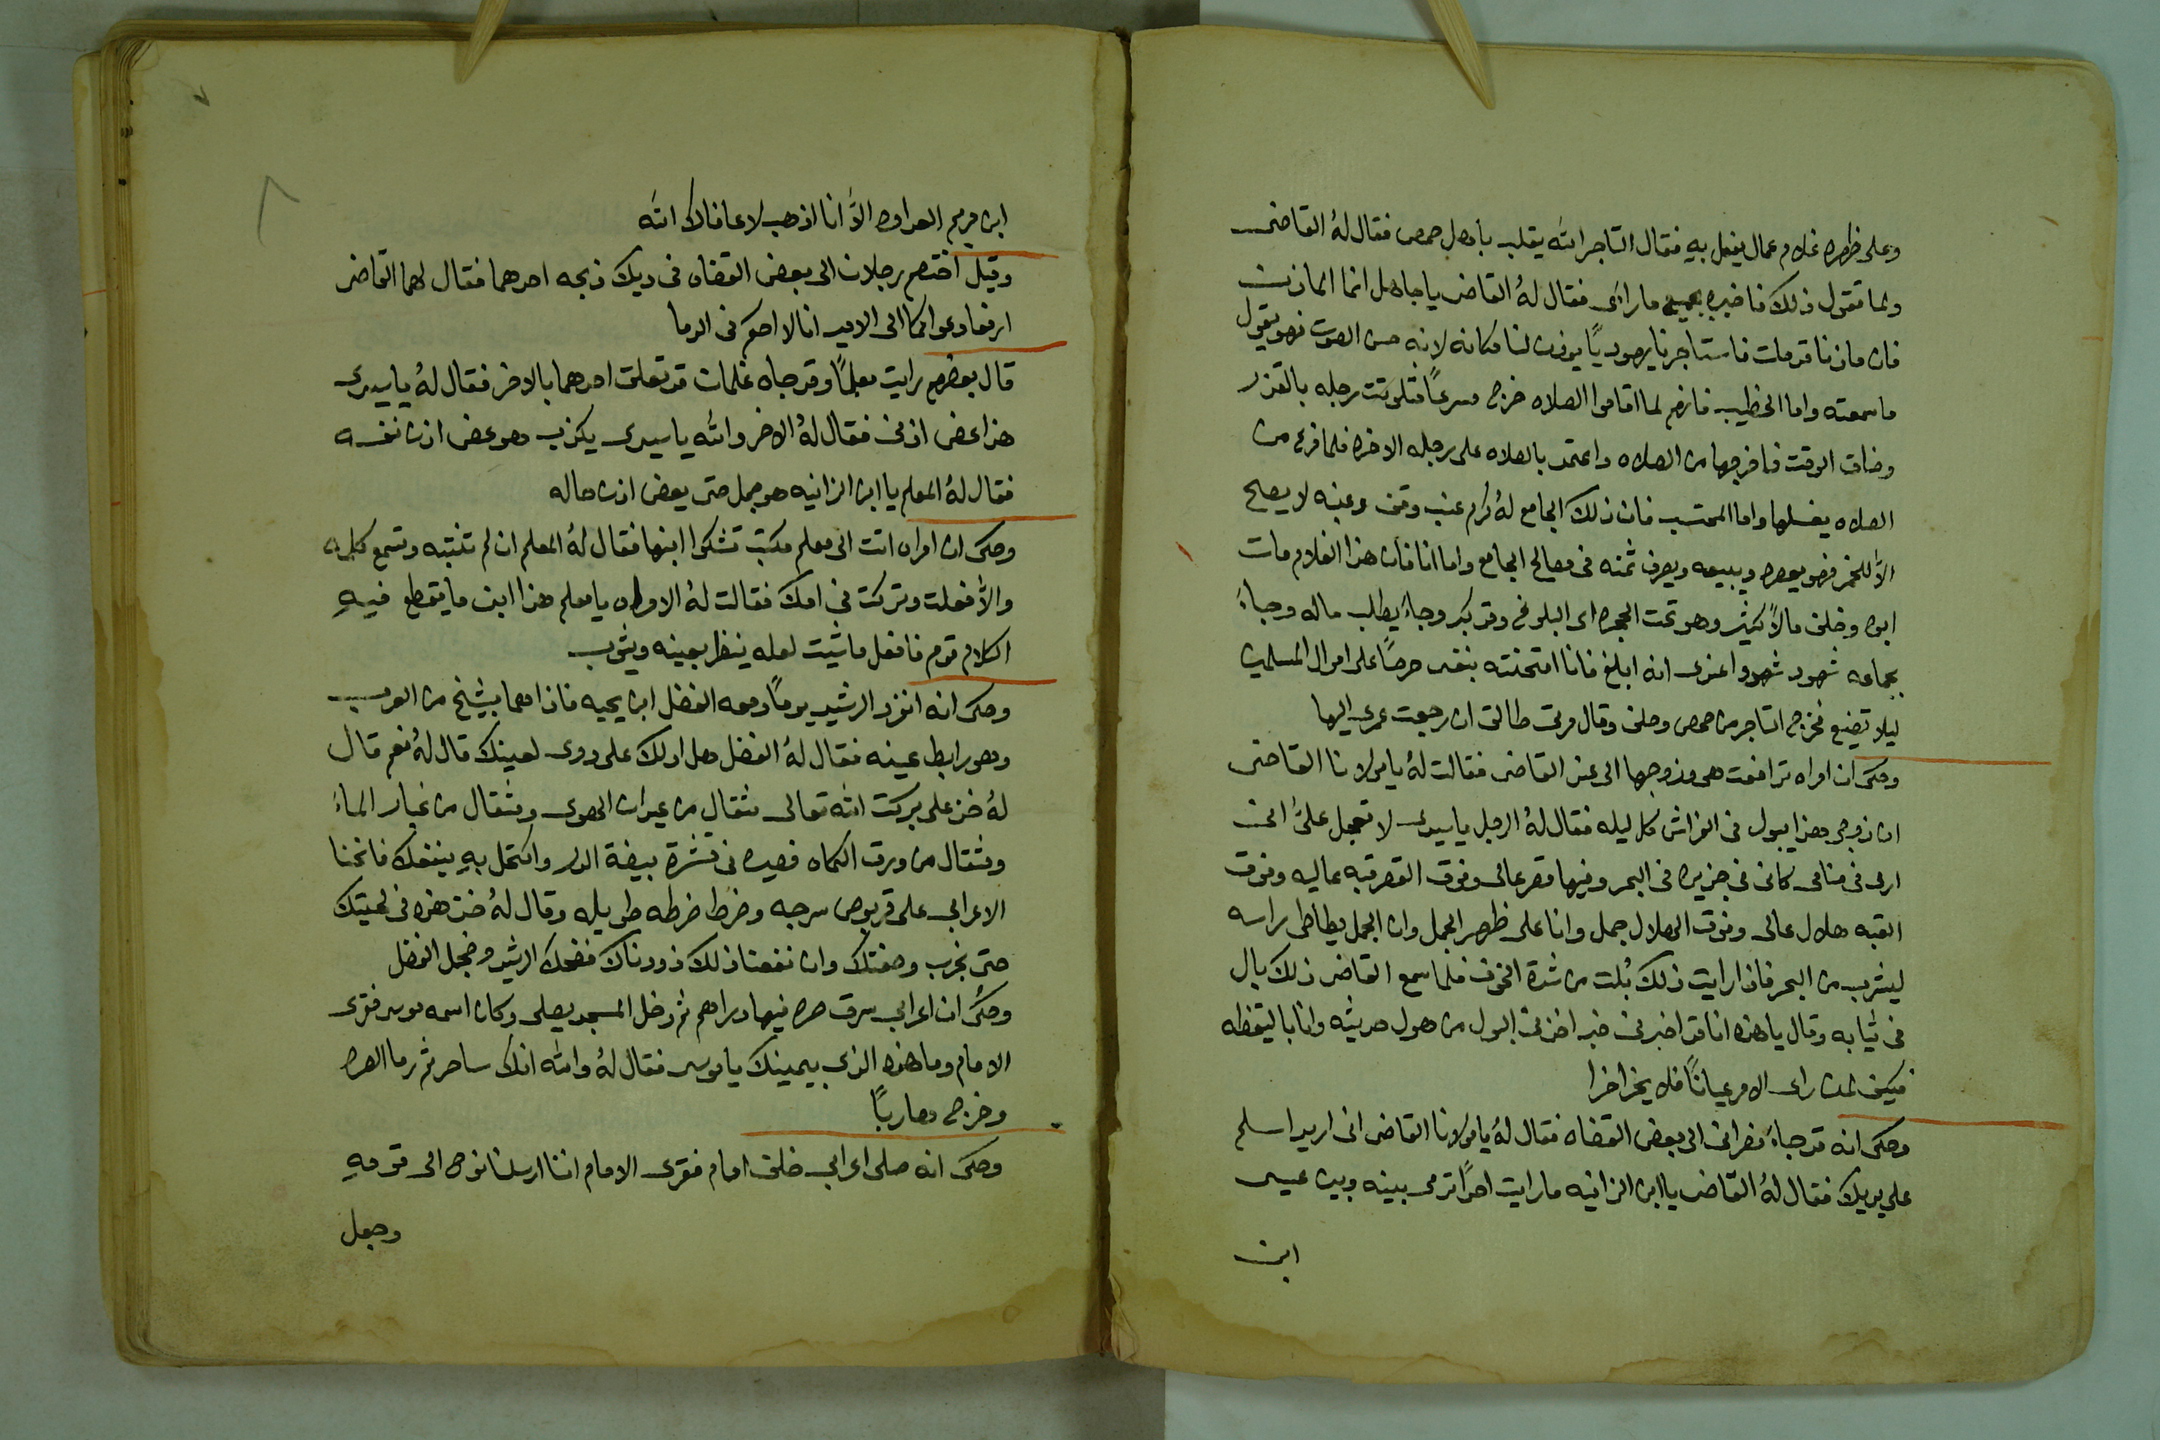 وعلى ظهره غلام عمال يفعل به فقال التاجر الله يقلب بأهل حمص فقال لهُ القاضي
ولما تقول ذلك فاخبره بجميع ماراى فقال لهُ القاضى ياجاهل انما المادنت
فان مادننا قدمات فاستاجرنا يهوديًا يودن لنا مكانه لانه حسن الصوت فهو يقول
ماسمعته واما الخطيب فانهم لما اقاموا الصلاه خرج مسرعًا فتلوتت رجله بالقدر
وضاق الوقت فاخرجها من الصلاه واعتمد بالصلاه على رجله الاخره فلما فرغ من
الصلاه يغسلها واما المحتسب فان ذلك الجامع لهُ كرم عنب وقف وعنبه لا يصلح
الاّ للخمر فهو يعصره ويبيعه ويصرف ثمنه في مصالح الجامع واما انا فان هذا الغلام مات
ابوه وخلف مالاً كثير وهو تحت الحجره اى البلوغ وقد كبر وجاءَ يطلب ماله وجاءَ
بجماعه شهود شهدوا عندى انه ابلغ فانا امتحنته بنفسى حرصًا على اموال المسلمين
ليلا تضيع فخرج التاجر من حمص وحلف وقال مرتى طالق ان رجعت عمرى اليها
وحكى ان امراه ترافعت هى وزوجها الى عند القاضى فقالت لهُ يامولانا القاضى
ان زوجى هذا يبول فى الفراش كل ليله فقال لهُ الرجل ياسيدى لا تعجل علىّ انى
ارى فى منامى كانى فى جزيره فى البحر وفيها قصر عالى وفوق القصر قبه عاليه وفوق
القبه هلال عالى وفوق الهلال جمل وانا على ظهر الجمل وان الجمل يطاطى براسه
ليشرب من البحر فاذا رايت ذلك بُلت من شدة الخوف فلما سمع القاضى ذلك بال
فى ثيابه وقال ياهذه انا قد اخبرنى خبر اخذنى البول من هول حديثه وانا باليقظه
فكيف لمن راى الامر عيانًا فلا يخرا خرا
وحكى انه قد جاءَ نصرانى الى بعض القضاه فقال لهُ يامولانا القاضى انى اريد اسلم
على يديك فقال لهُ القاضى يا ابن الزانيه مارايت احدًا ترمى بينه وبين عيسى
ابن
ابن مريم العداوه الاّ انا اذهب لا عافاك الله
وقيل اختصم رجلان الى بعض القضاه فى ديك ذبحه احدهما فقال لهما القاضى
ارفعا دعواكما الى الامير انا لا احكم فى الدما
قال بعضهم رايت معلمًا وقد جاه غلمان قد تعلق احدهما بالاخر فقال لهُ ياسيدى
هذا عض اذنى فقال لهُ الاخر والله ياسيدى يكذب وهو عض اذن نفسه
فقال لهُ المعلم يا ابن الزانيه هو جمل حتى يعض اذن حاله
وحكى ان امراه اتت الى معلم مكتب تشكوا ابنها فقال لهُ المعلم ان لم تنتبه وتسمع كلامه
والاّ فعلت وتركت فى امك فقالت لهُ الامراه يامعلم هذا ابن مايقطع فيهِ
الكلام قوم فافعل ماشيت لعله ينظر بعينه ويتوب
وحكى انه انفرد الرشيد يومًا ومعه الفضل ابن يحيه فاذاهما بشيخ من العرب
وهو رابط عينه فقال لهُ الفضل هل ادلك على دوى لعينك قال لهُ نعم قال
لهُ خذ على بركت الله تعالى مثقال من عيدان الهوى ومثقال من غبار الماءَ
ومثقال من ورق الكماه فصيره فى قشرة بيضة الدر واكتحل بهِ ينفعك فانحنا
الاعرابى على قربوص سرجه وضرط ضرطه طويله وقال لهُ خذ هذه فى لحيتك
حتى نجرب وصفتك وان نفعنا ذلك زودناك فضحك الرشيد وخجل الفضل
وحكُى ان اعرابى سرق صره فيها دراهم ثم دخل المسجد يصلى وكان اسمه موسى فقرى
الامام وما هذه الذى بيمينك ياموسى فقال لهُ والله انك ساحر ثم رما الصره
وخرج هاربًا
وحكى انه صلى اعرابى خلف امام فقرى الامام اننا ارسلنا نوح الى قومهِ
وجعل
٨